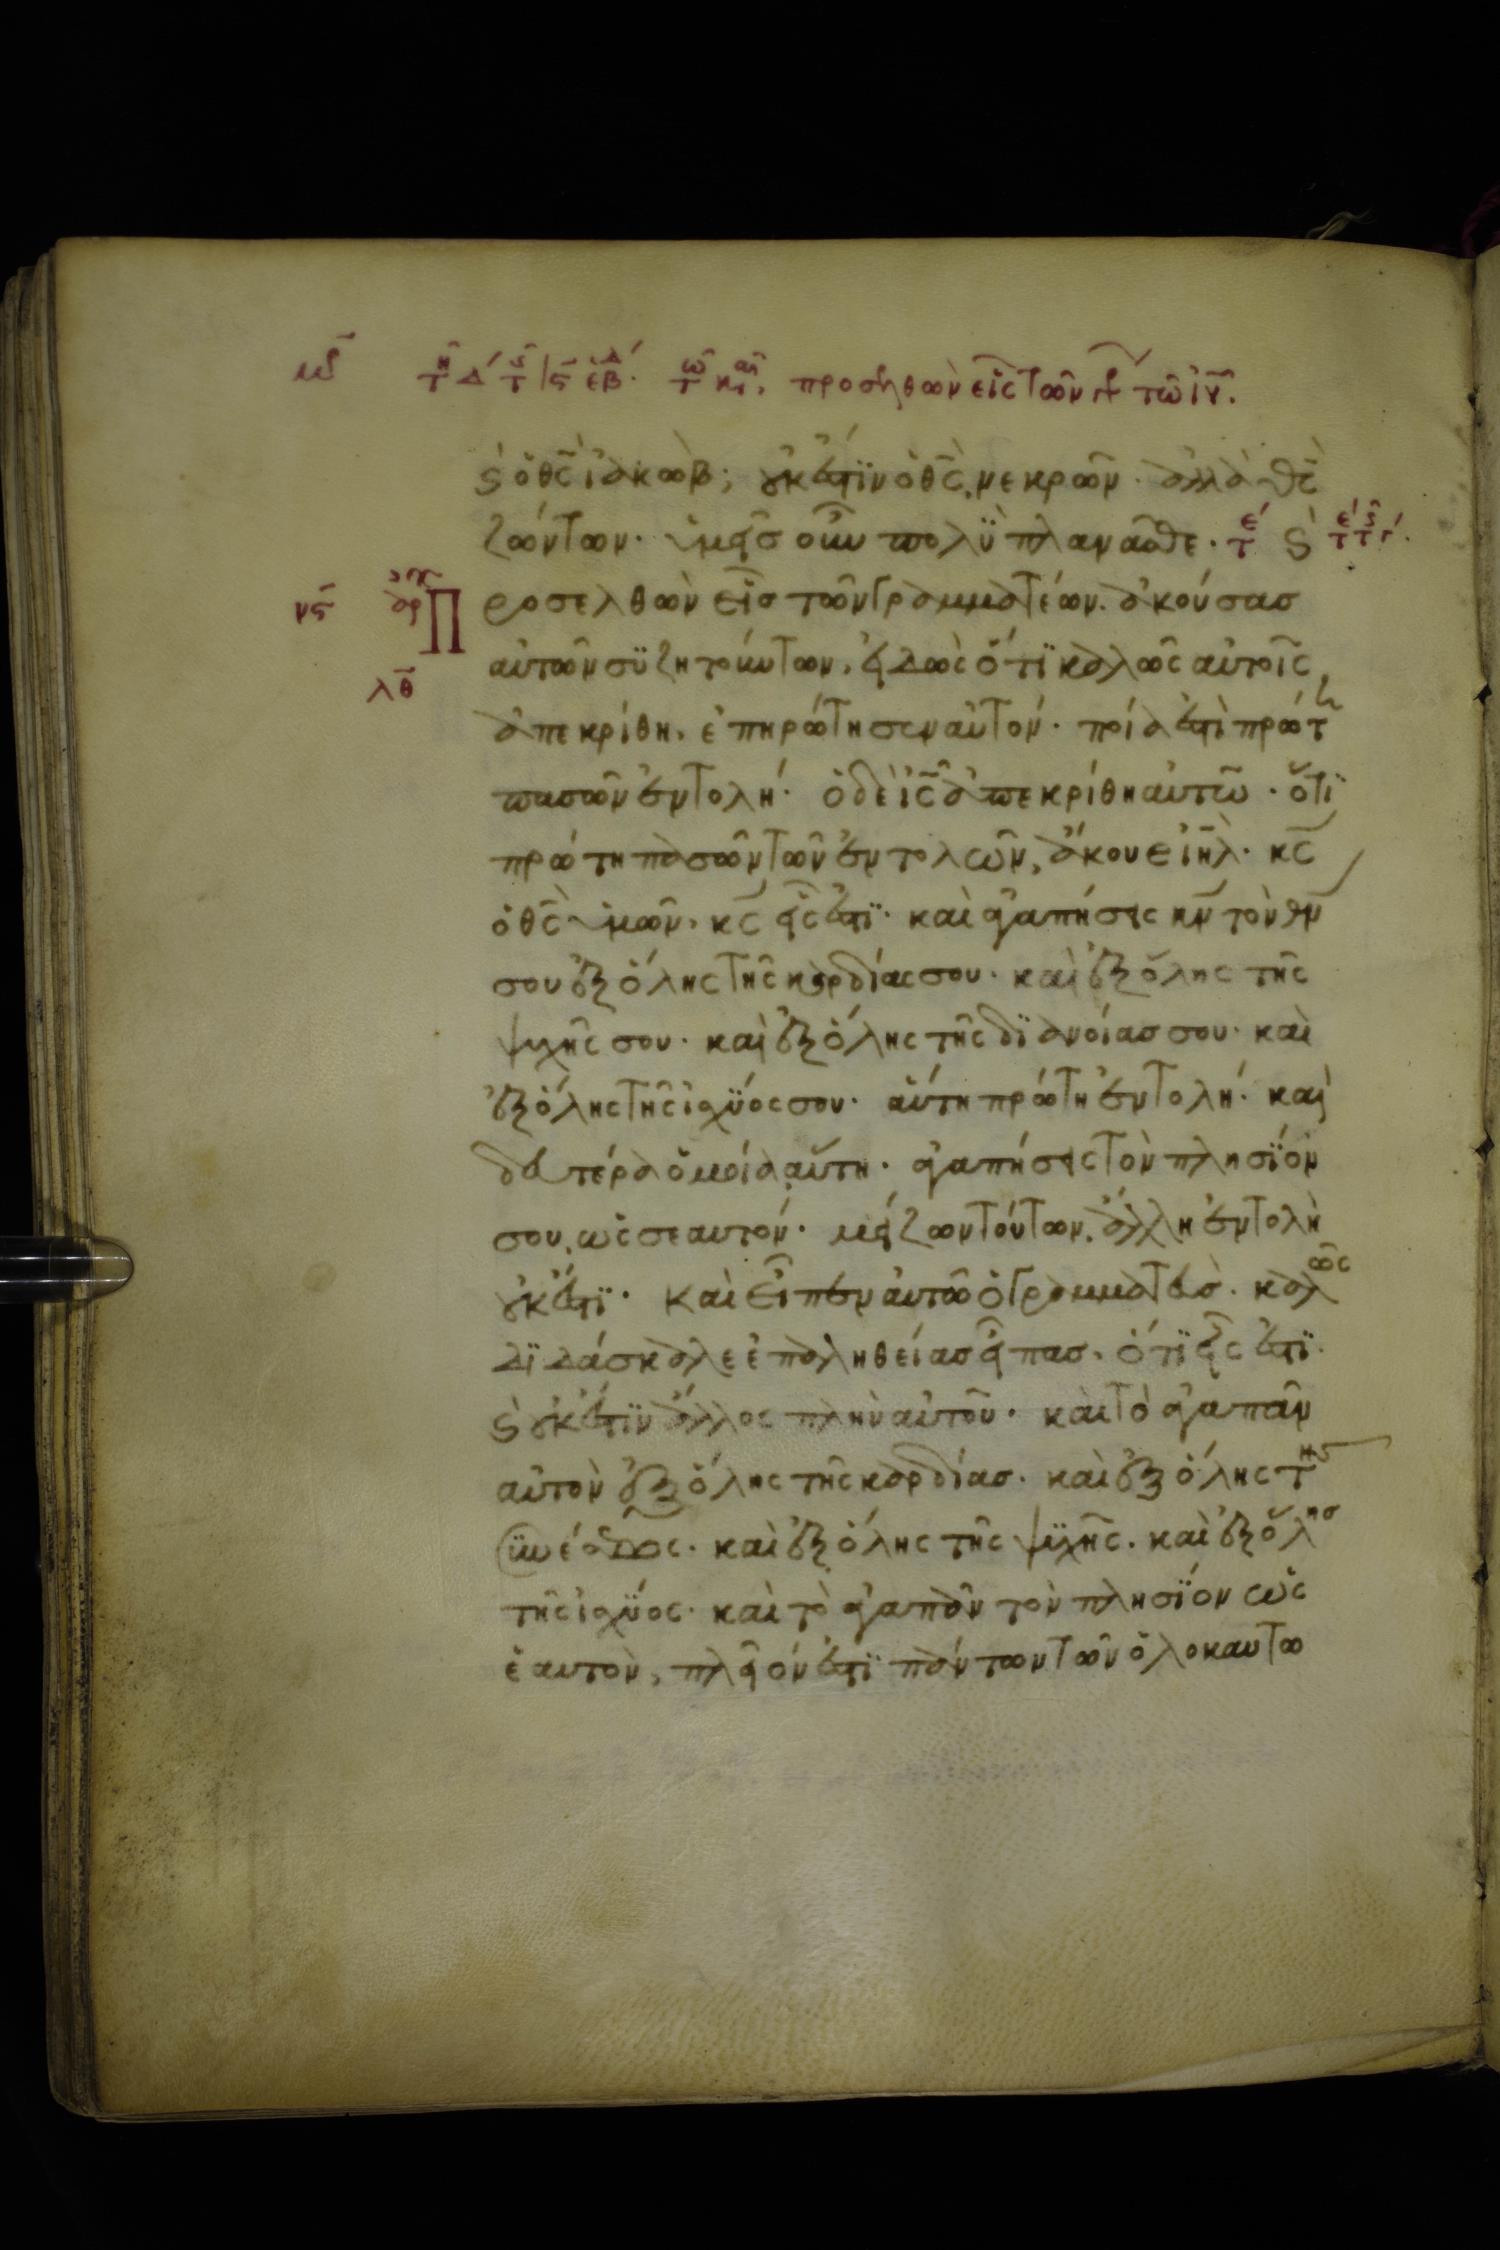 τῇ δ τῆς ϛ ἑβδ. τῷ κρῷ, προσῆλθὼν εἷς τῶν τῷ ἰῦ.
ϛ ὁ θς ἰακώβ; οὐκ ἔστϊν ὁ θς, νεκρῶν. ἀλλὰ θς
ζώντων. ὑμεῖσ οὖν πολϋ πλανᾶσθε. τε ϛ
νϛ αρχ Προσελθὼν εἷσ τῶν γραμματέων. ἀκούσασ
αὐτῶν συζητούντων, εἰδὼς ὅτϊ καλῶς αὐτοῖς
λθ
ἀπεκρίθη, ἐπηρώτησεν αὐτόν. ποία ἐστὶ πρώτη
πασῶν ἐντολή. ὁ δὲ ις ἀπεκρίθη αὐτῶ. ὅτϊ
πρώτη πασῶν τῶν ἐντολῶν, ἄκουε ιηλ. κς
ὁ θς ὑμῶν, κς εἷς ἐστϊ. καὶ ἀγαπήσεις κν τὸν θν
σου ἐξ ὅλης τῆς καρδίας σου. καὶ ἐξ ὅλης τῆς
ψυχῆς σου. καὶ ἐξ ὅλης τῆς δϊανοίασ σου. καὶ
ἐξ ὅλης τῆς ἰσχϋός σου. αὕτη πρώτη ἐντολή. καὶ
δευτέρα ὁμοία αὕτη. ἀγαπήσεις τὸν πλησϊόν
σου, ὡς σεαυτόν. μείζων τούτων, ἄλλη ἐντολὴ
οὐκ ἔστϊ. καὶ εἶπεν αὐτῶ ὁ γραμματεύσ. καλῶς
δϊδάσκαλε ἐπ ἀληθείασ εἶπασ, ὅτϊ εἷς ἐστϊ.
ϛ οὐκ ἔστϊν ἄλλος πλὴν αὐτοῦ. καὶ τὸ ἀγαπᾶν
αὐτὸν ἐξ ὅλης τῆς καρδίασ. καὶ ἐξ ὅλης τῆς
συνέσεως. καὶ ἐξ ὅλης τῆς ψυχῆς. καὶ ἐξ ὅλησ
τῆς ἰσχϋος. καὶ τὸ ἀγαπᾶν τὸν πλησϊόν ὡς
ἑαυτὸν, πλεῖόν ἐστϊ πάντων τῶν ὁλοκαυτω